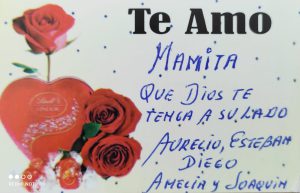 Te Amo
MAMITA
QUE DIOS TE
TENGA A SU LADO
AURELIO, ESTEBAN
DIEGO
AMELIA Y JOAQUIN
Lindt